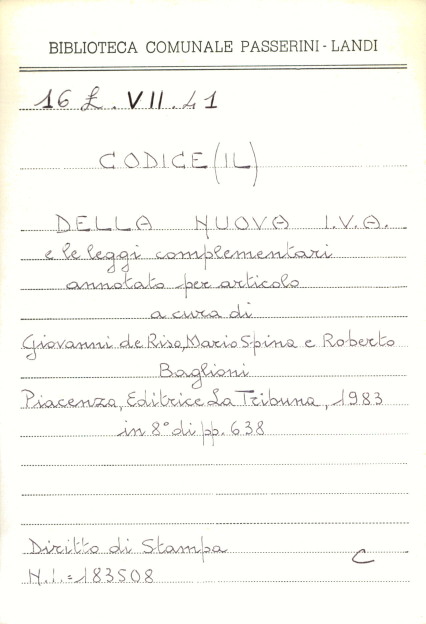 BIBLIOTECA COMUNALE PASSERINI-LANDI
16 L. VII. 41
CODICE (IL)
DELLA NUOVA I.V.A.
e le leggi complementari
annotato per articolo
a cura di
Giovanni de Riso, Mario Spina e Roberto
Baglioni
Piacenza, Editrice La Tribuna, 1983
in 8° di pp. 638
Diritto di Stampa
C
N.i.=183508